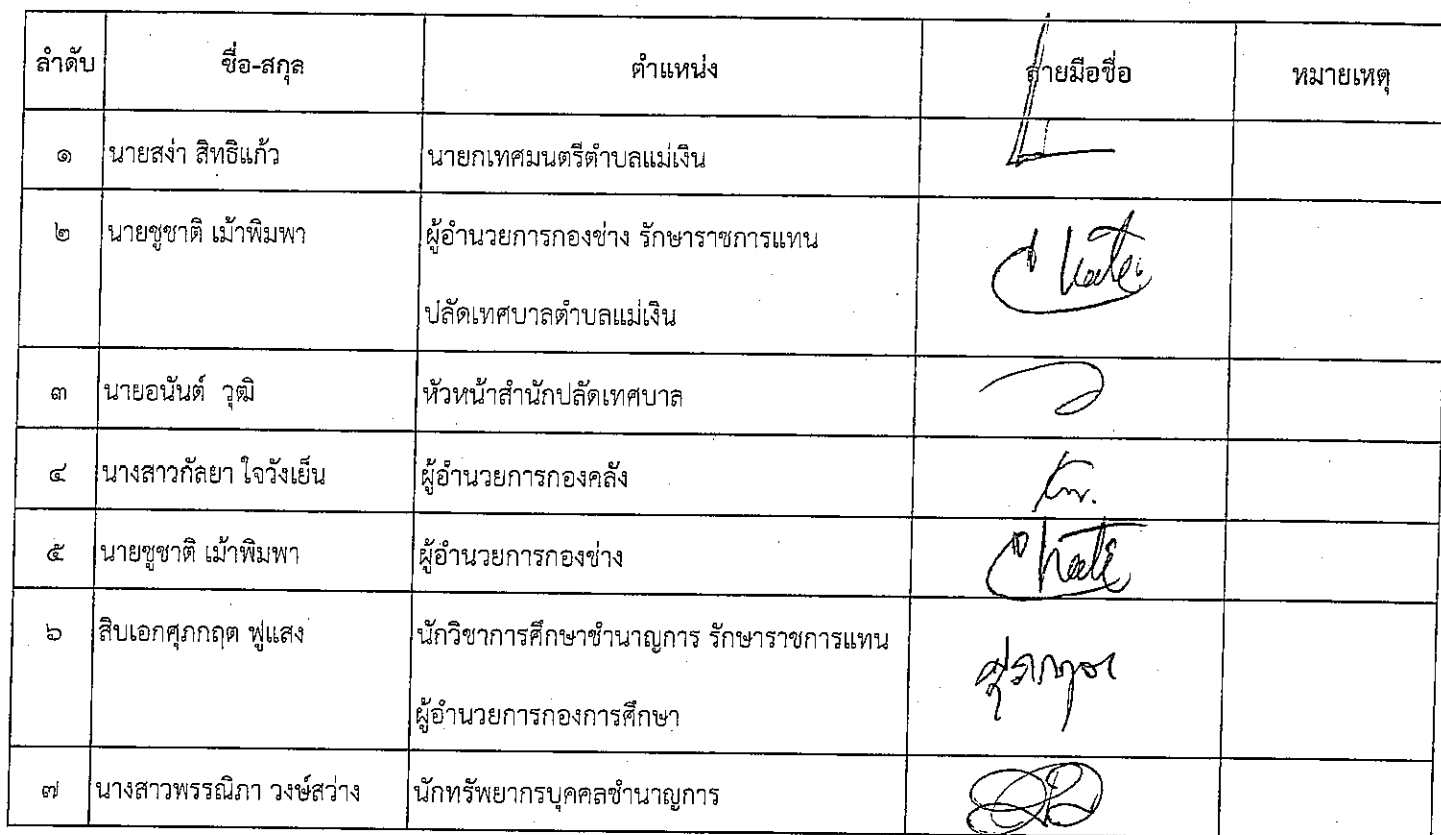 ลำดับ ชื่อ-สกุล ตำแหน่ง ลายมือชื่อ หมายเหตุ
๑ นายสง่า สิทธิแก้ว นายกเทศมนตรีตำบลแม่เงิน
๒ นายชูชาติ เม้าพิมพา ผู้อำนวยการกองช่าง รักษาราชการแทน
ปลัดเทศบาลตำบลแม่เงิน
๓ นายอนันต์ วุฒิ หัวหน้าสำนักปลัดเทศบาล
๔ นางสาวกัลยา ใจวังเย็น ผู้อำนวยการกองคลัง
๕ นายชูชาติ เม้าพิมพา ผู้อำนวยการกองช่าง
๖ สิบเอกศุภกฤต ฟูแสง นักวิชาการศึกษาชำนาญการ รักษาราชการแทน
ผู้อำนวยการกองการศึกษา
๗ นางสาวพรรณิภา วงษ์สว่าง นักทรัพยากรบุคคลชำนาญการ